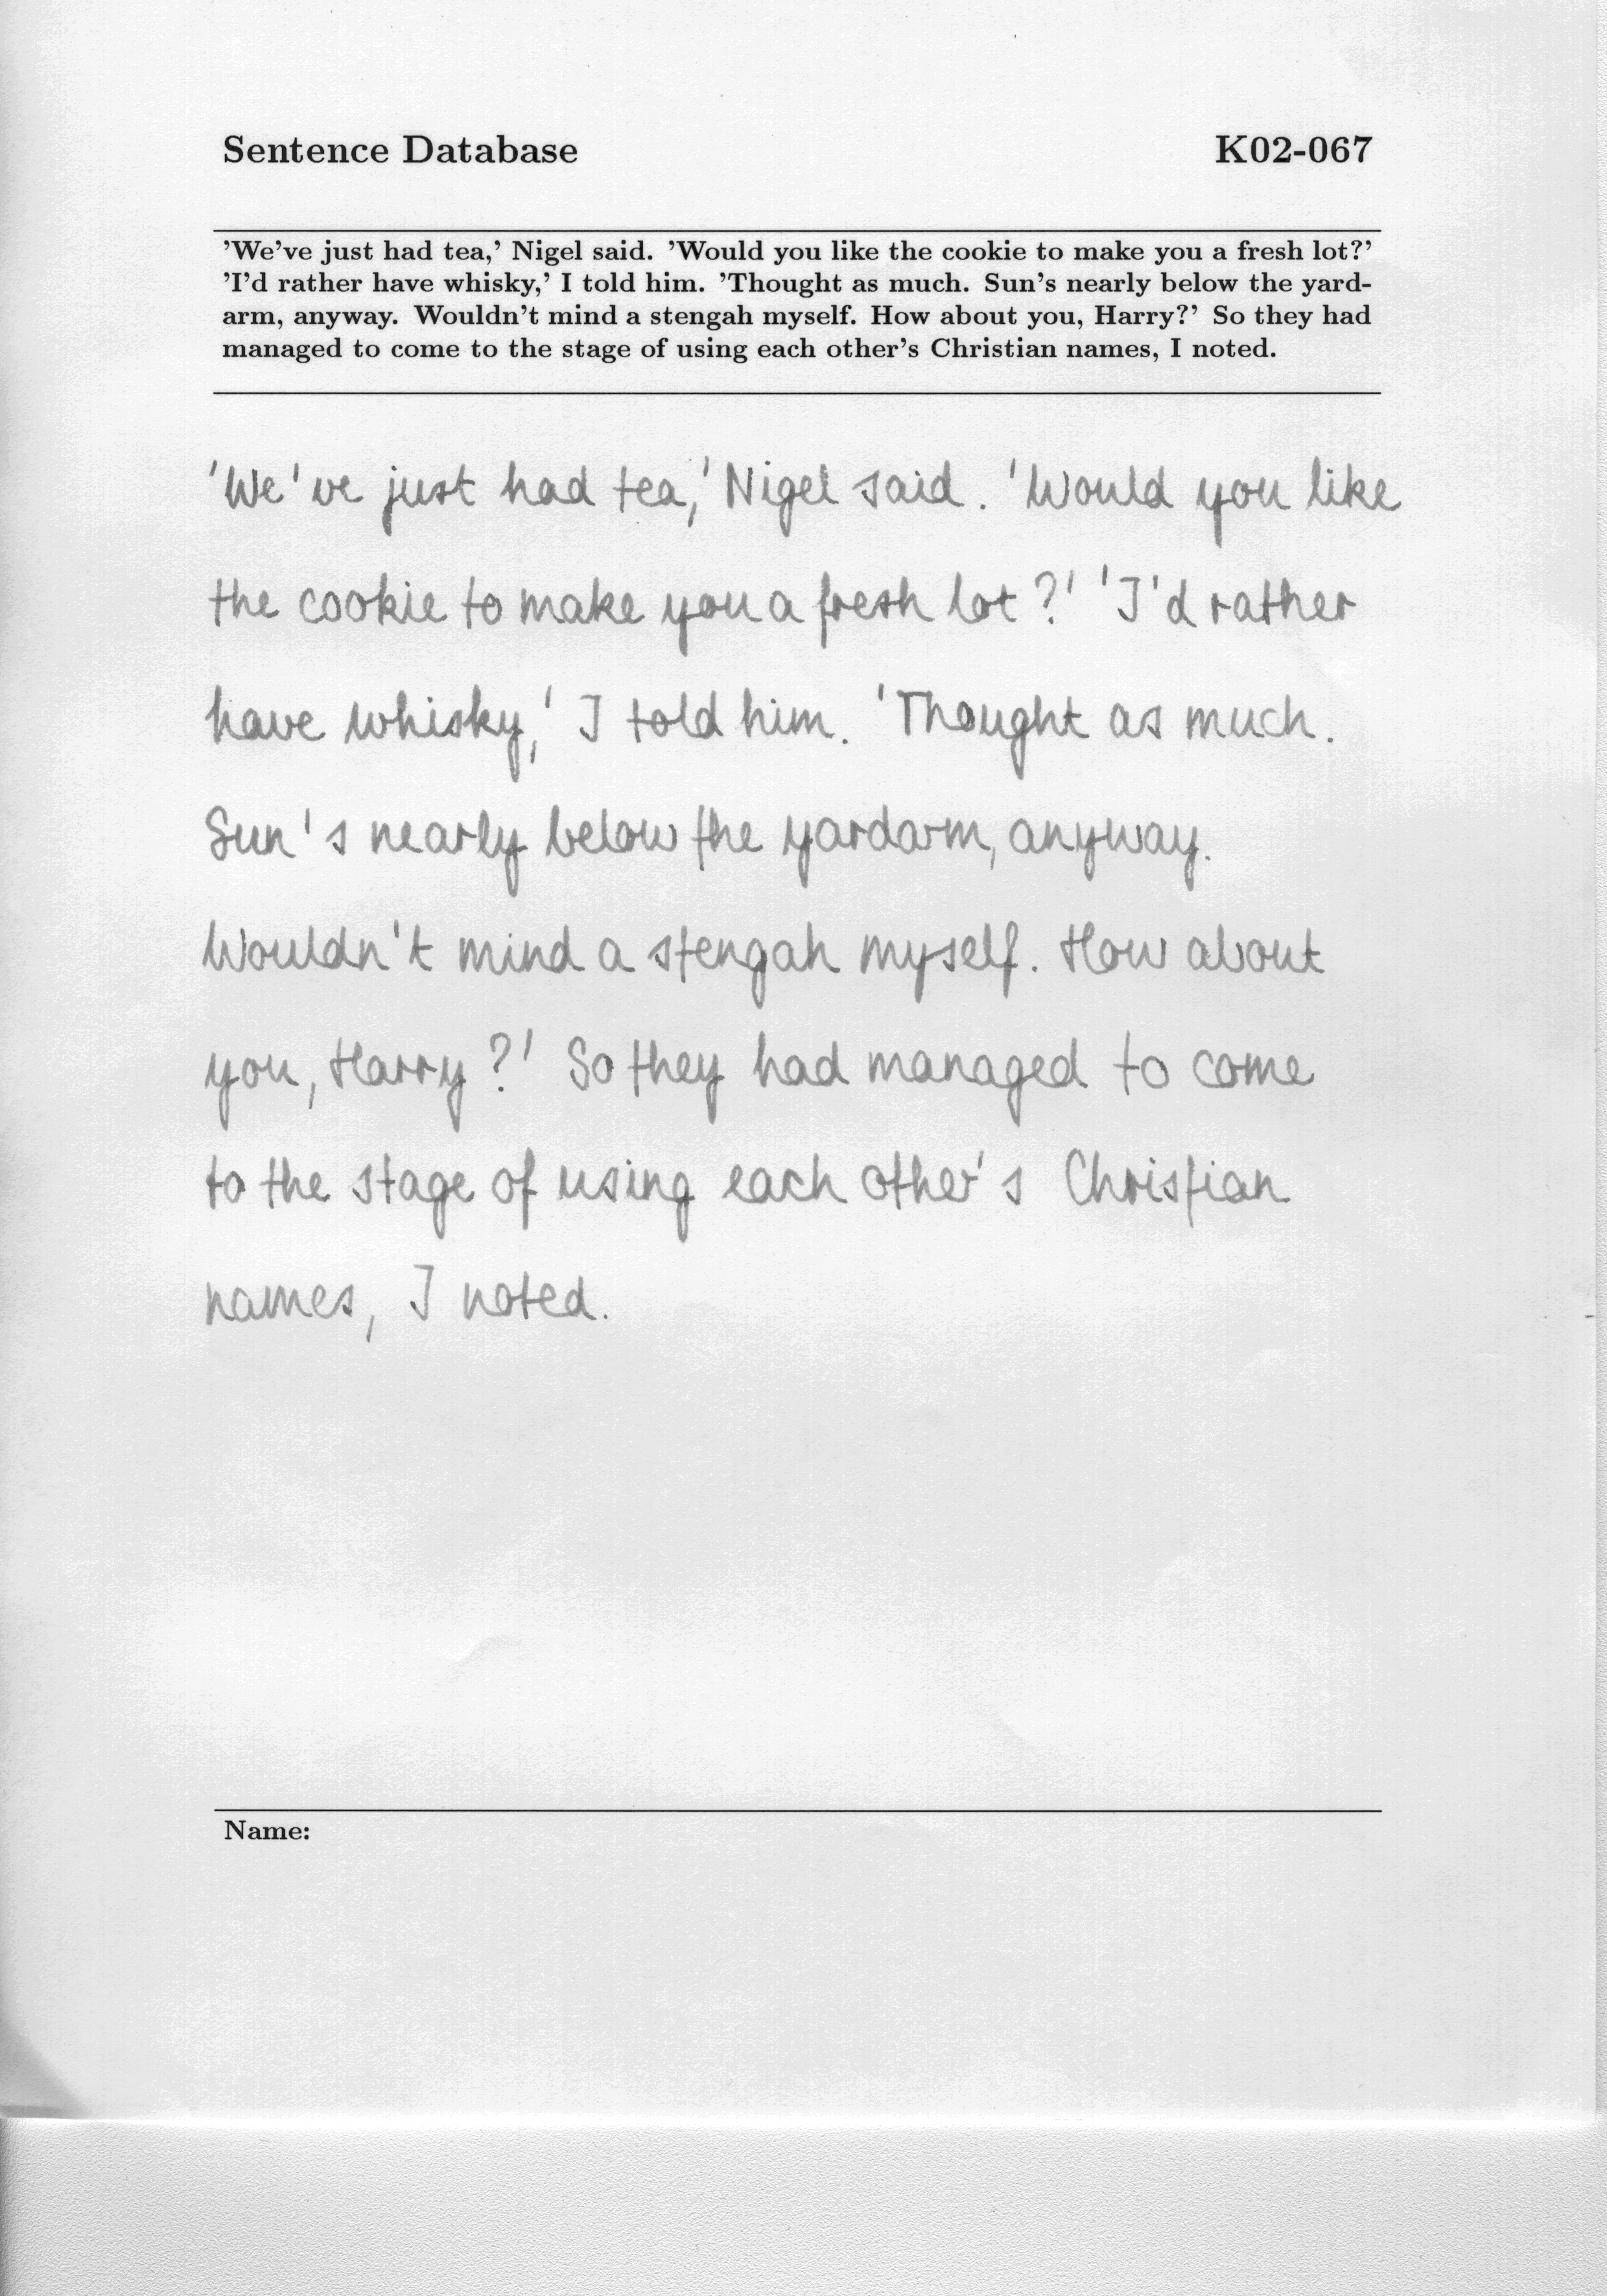 Sentence Database K02-067
'We've just had tea,' Nigel said. 'Would you like the cookie to make you a fresh lot?'
'I'd rather have whisky,' I told him. 'Thought as much. Sun's nearly below the yard-
arm, anyway. Wouldn't mind a stengah myself. How about you, Harry?' So they had
managed to come to the stage of using each other's Christian names, I noted.
'We've just had tea,' Nigel said. 'Would you like
the cookie to make you a fresh lot?' 'I'd rather
have whisky,' I told him. 'Thought as much.
Sun's nearly below the yardarm, anyway.
Wouldn't mind a stengah myself. How about
you, Harry?' So they had managed to come
to the stage of using each other's Christian
names, I noted.
Name: